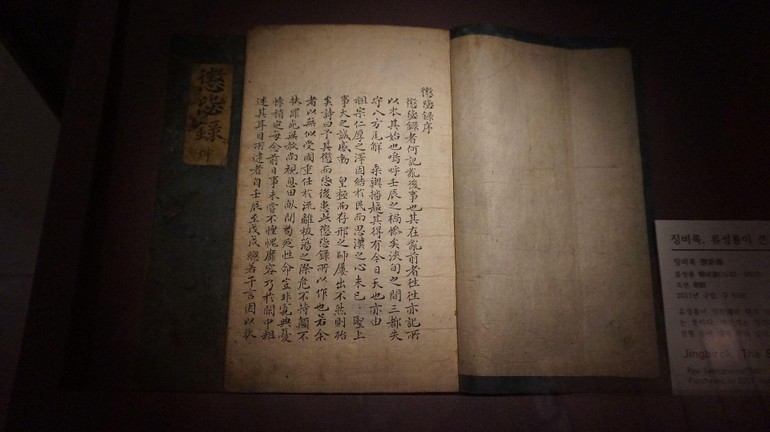 懲毖錄
懲毖錄序
懲毖錄者何記亂後事也其在亂前者往往亦記所
以本其始也嗚呼壬辰之禍慘矣浹旬之間三都失
守八方瓦解 乘輿播越其得有今日天也亦由
祖宗仁厚之澤固結於民而思漢之心未已 聖上
事大之誠感動 皇極而存邢之師屢出不然則殆
矣詩曰予其懲而毖後患此懲毖錄所以作也若余
者以無似受國重任於流離板蕩之際危不持顚不
扶罪死無赦尚視息田畝間苟延性命豈非寬典憂
悸稍定每念前日事未嘗不惶愧靡容乃於閑中粗
述其耳目所逮者自壬辰至戊戌總若干言因以狀
징비록, 류성룡이
징비록
Jingbirok, The